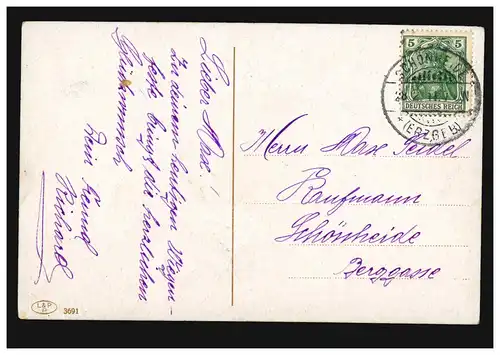 Lieber Max!
Zu deinem heutigen Wiegen-
feste bringt die herzlichsten
Glückwünsche
Dein Freund
Richard
L&P
3691
5 5
DEUTSCHES REICH
(ERZGEB.)
Herrn Max Seidel
Kaufmann
Schönheide
Berggasse